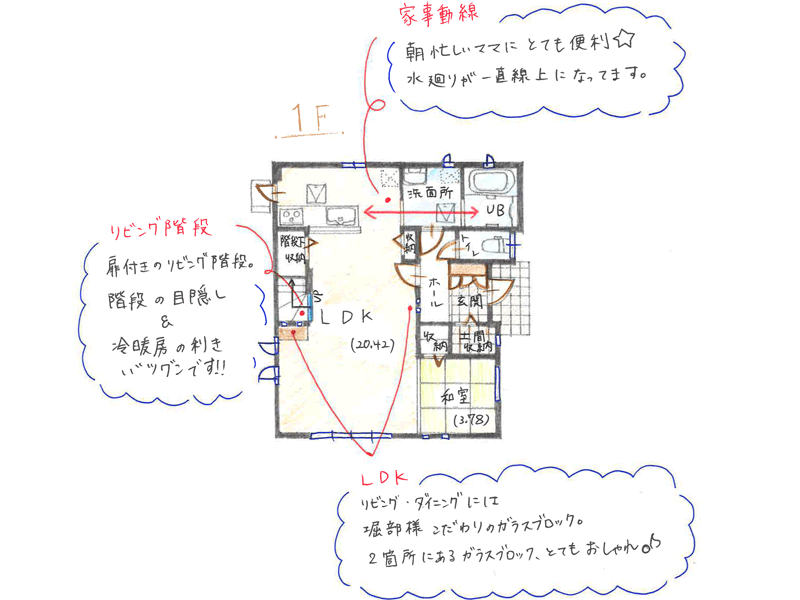 家事動線
朝忙しいママにとても便利☆
水廻りが一直線上になってます。
1F
洗面所
UB
リビング階段
扉付きのリビング階段。
階段の目隠し
&
冷暖房の利き
バツグンです!!
階段下
収納
収納
トイレ
ホール
玄関
UP
LDK
(20.42)
収納
土間
収納
和室
(3.78)
LDK
リビング・ダイニングには
堀部様こだわりのガラスブロック。
2箇所にあるガラスブロック、とてもおしゃれ♪